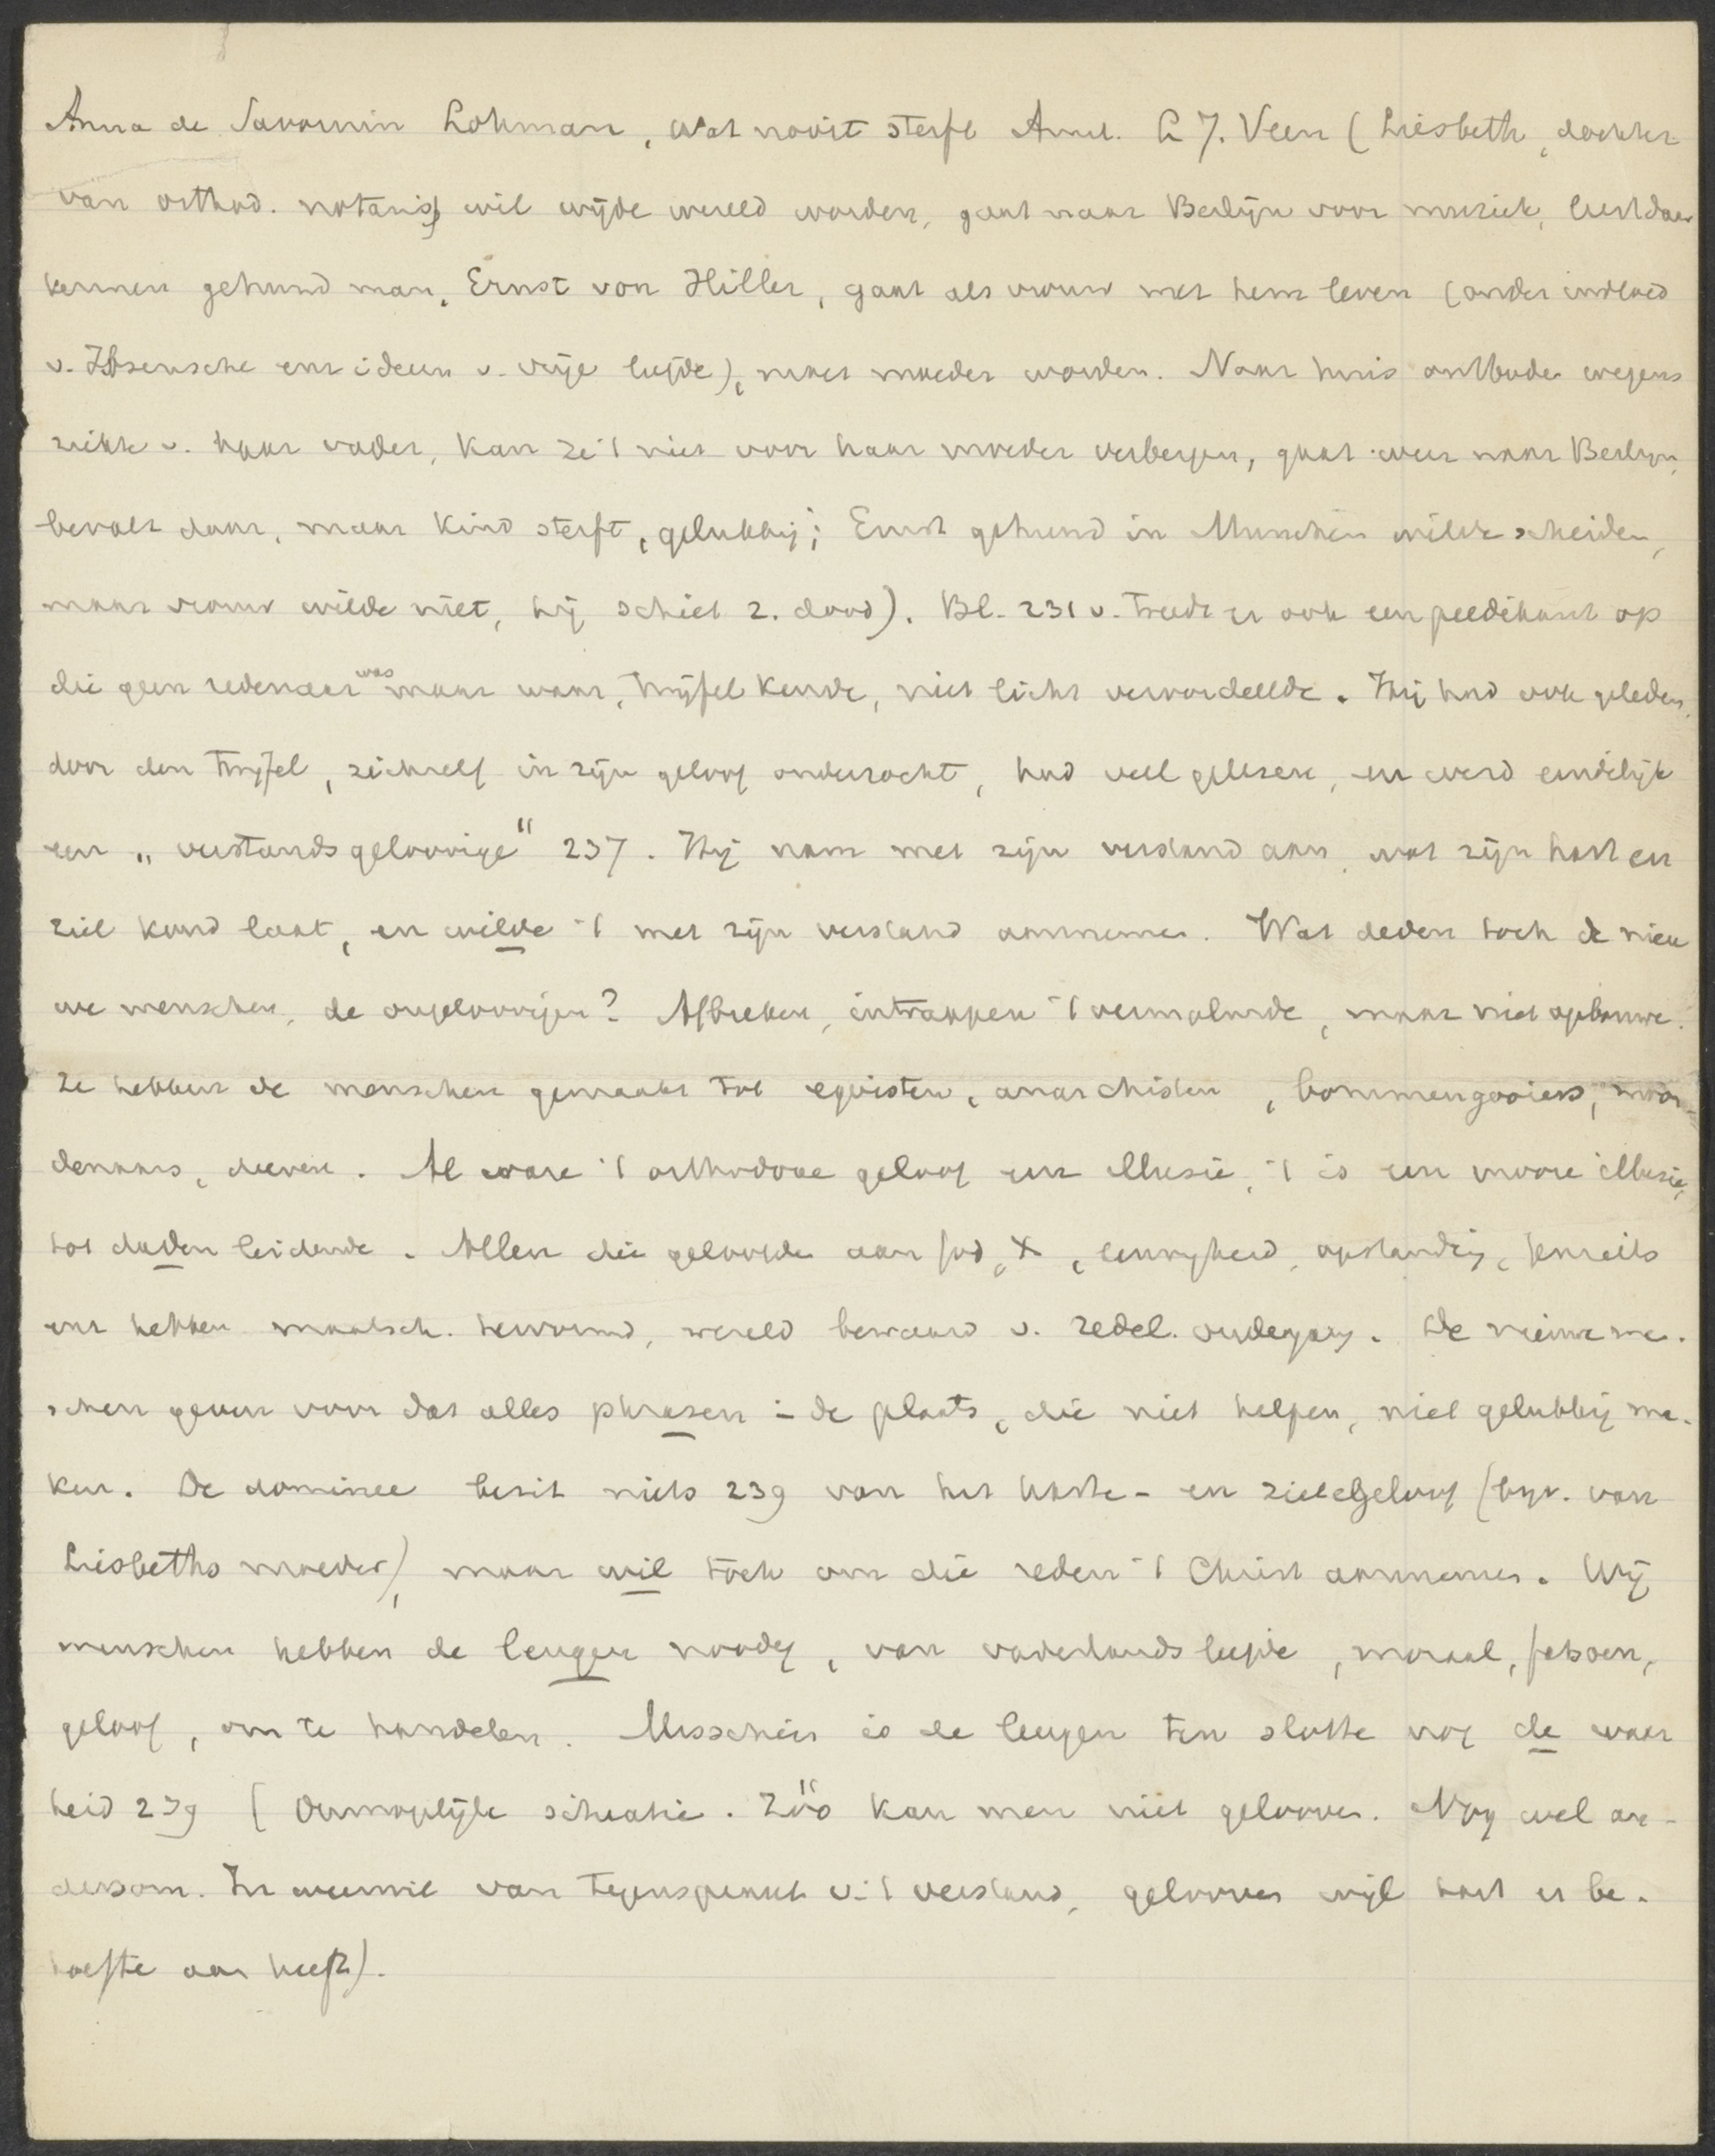 Anna de Savornin Lohman, Wat nooit sterft Amst. L J. Veen (Liesbeth, dochter
van orthod. notaris, wil wijde wereld worden, gaat naar Berlijn voor muziek, leert daar
kennen gehuwd man, Ernst von Hiller, gaat als vrouw met hem leven (onder invloed
v. Ibsensche enz ideeen v. vrije liefde), moet moeder worden. Naar huis ontboden wegens
ziekte v. haar vader, kan ze 't niet voor haar moeder verbergen, gaat weer naar Berlijn,
bevalt daar, maar kind sterft, gelukkig; Ernst gehuwd in Munchen wilde scheiden,
maar vrouw wilde niet, hij schiet z. dood). Bl. 231 v. treedt er ook een predikant op
die geen redenaar was maar waar, twijfel kende, niet licht veroordeelde. Hij had ook geleden,
door den twijfel, zichzelf in zijn geloof onderzocht, had veel gelezen, en werd eindelijk
een "verstandsgeloovige" 237. Hij nam met zijn verstand aan, wat zijn hart en
ziel koud laat, en wilde 't met zijn verstand aannemen. Wat deden toch de nieu
we menschen, de ongeloovigen? Afbreken, intrappen 't vermolmde, maar niet opbouwe.
Ze hebben de menschen gemaakt tot egoisten, anarchisten, bommengooiers, moor-
denaars, dieven. Al ware 't orthodoxe geloof een illusie, 't is een mooie illusie,
tot daden leidende. Allen die geloofde aan God, X, eeuwigheid, opstanding, Jenseits
enz hebben maatsch. hervormd, wereld bewaard v. zedel. ondergang. De nieuwe me.
schen geven voor dat alles phrasen in de plaats, die niet helpen, niet gelukkig ma.
ken. De dominee bezit niets 239 van het harte- en zielegeloof (bijv. van
Liesbeths moeder), maar wil toch om die reden 't Christ aannemen. Wij
menschen hebben de leugen noodig, van vaderlandsliefde, moraal, fatsoen,
geloof, om te handelen. Misschien is de leugen ten slotte nog de waar
heid 239 (Onmogelijke situatie. Zóó kan men niet gelooven. Nog wel an-
dersom. In weerwil van tegenspraak v. 't verstand, gelooven wijl hart er be.
hoefte aan heeft).